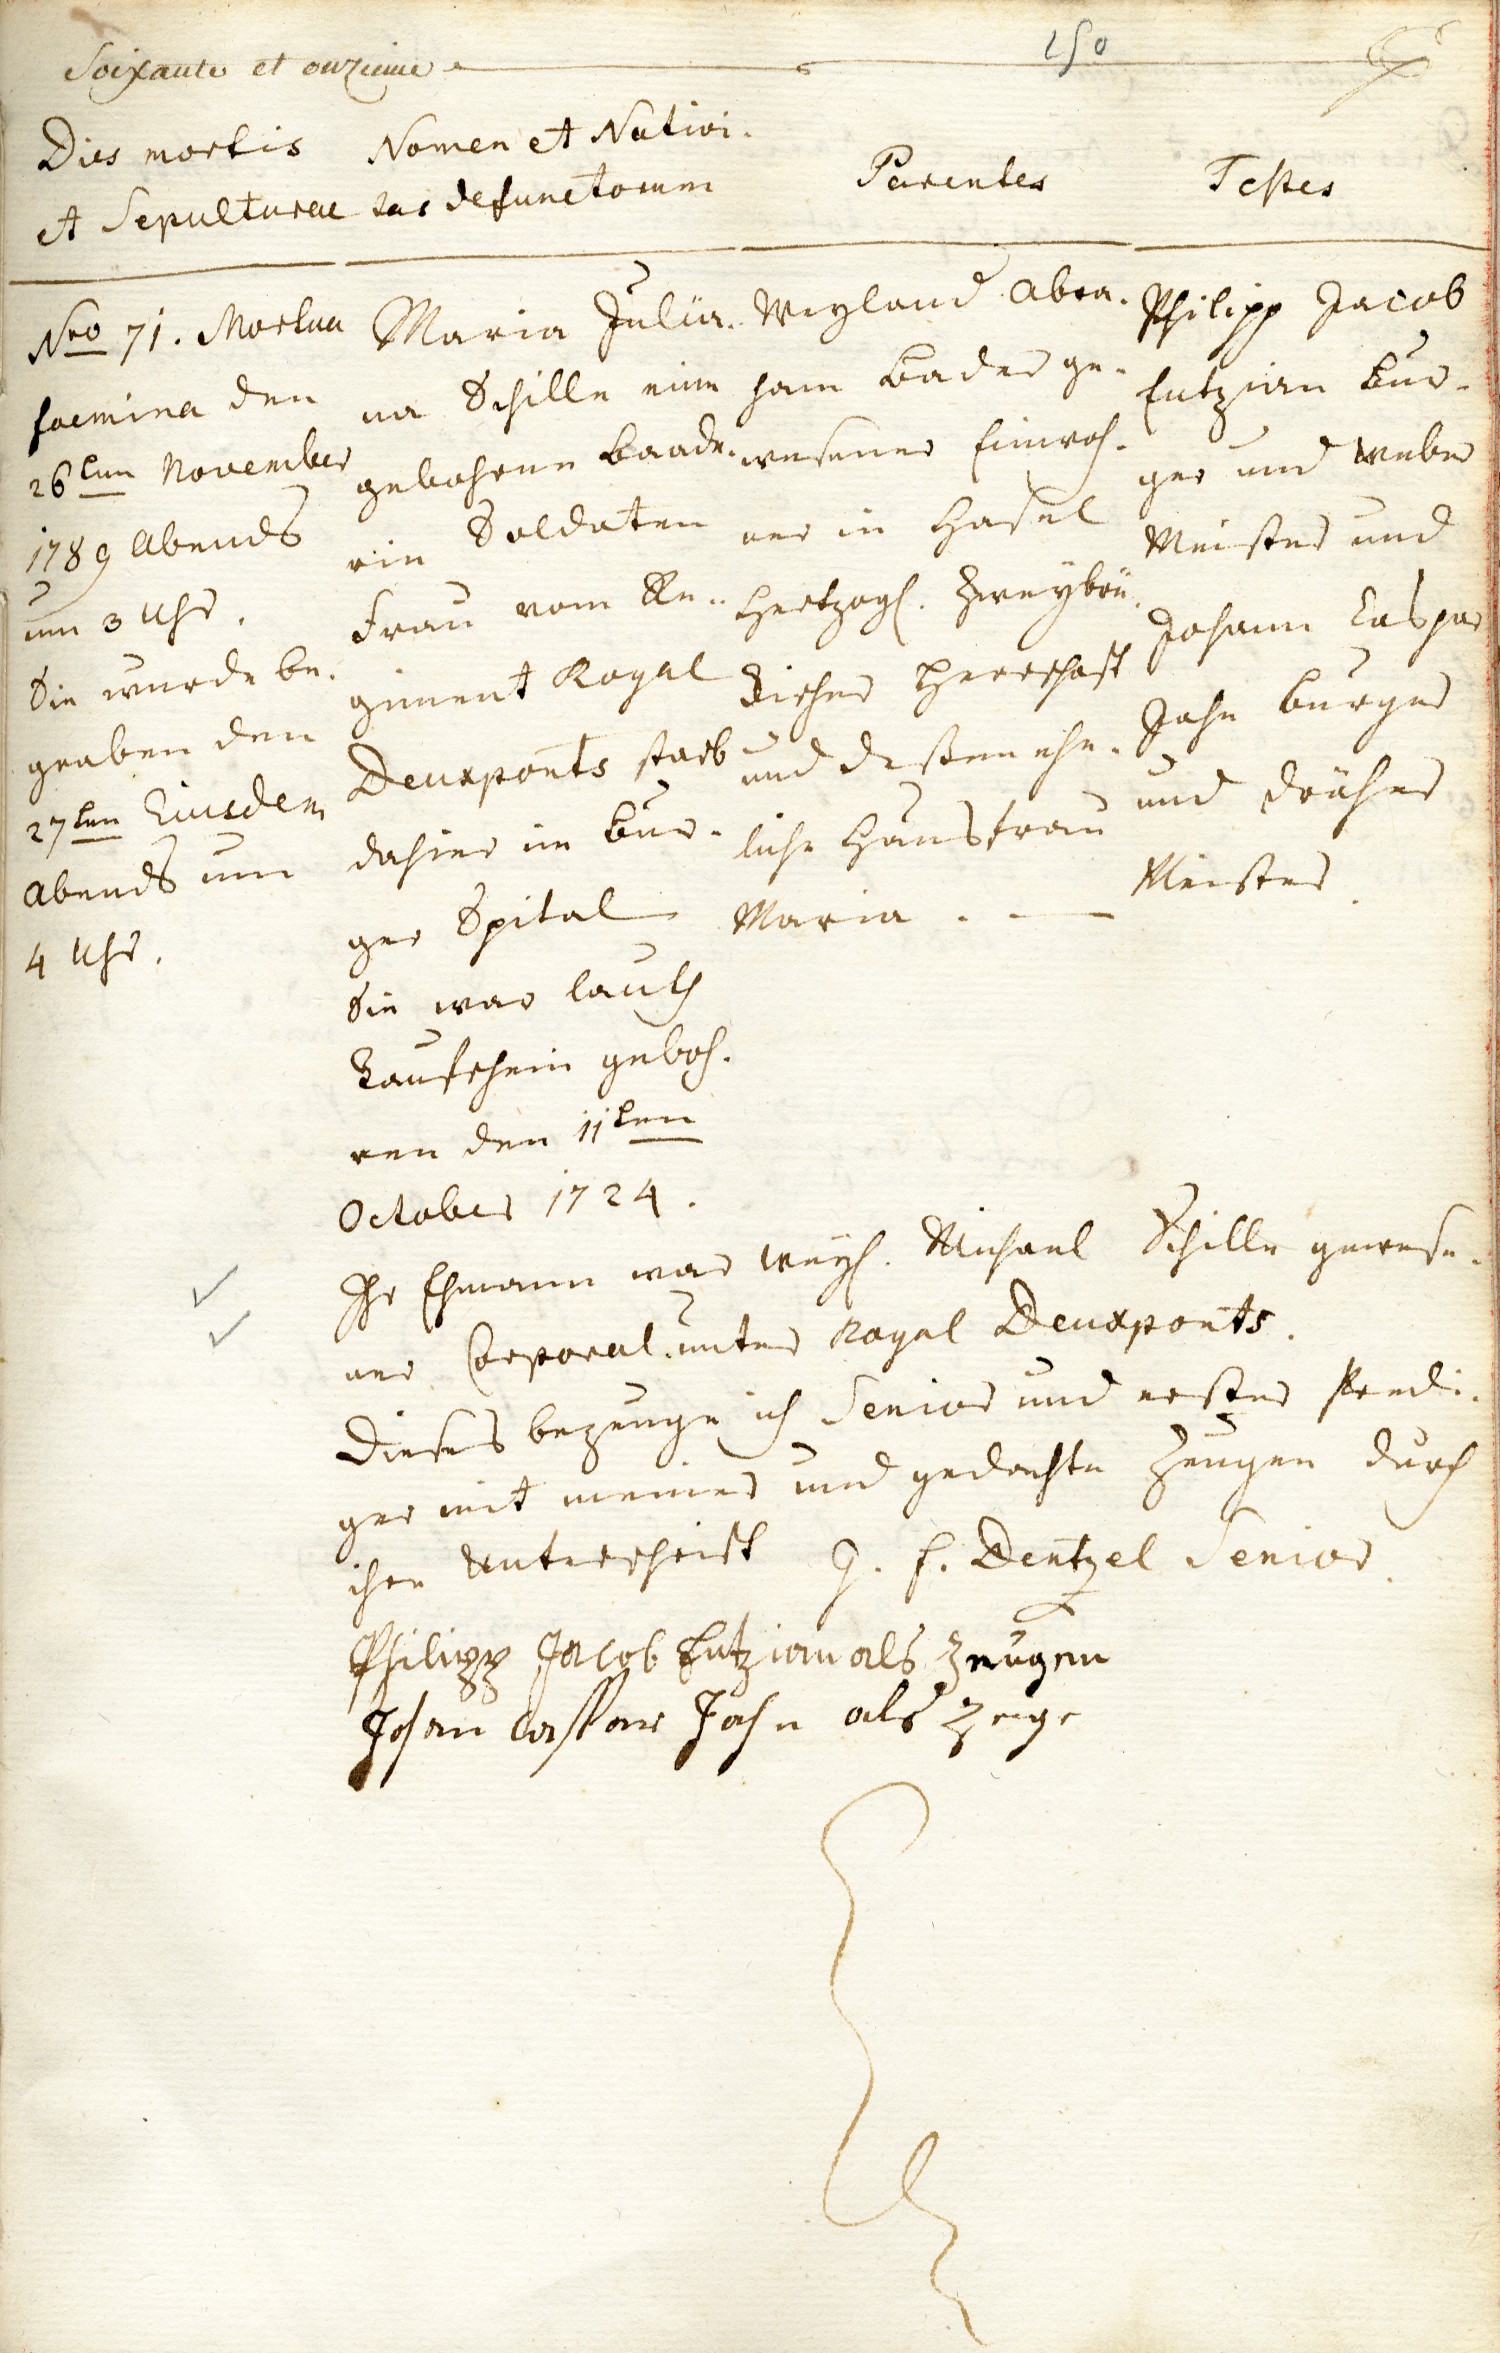 Soixante et onzieme
150
Dies mortis
et Sepulturae
Nomen et Nativi-
tas defunctorum
Parentes
Testes
Nro 71. Mortua
foemina den
26ten November
1789 Abends
um 3 Uhr.
Sie wurde be-
graben den
27ten Eiusdem
Abends um
4 Uhr.
Maria Julia-
na Schille eine
gebohrne Baade-
rin Soldaten
Frau vom Re-
giment Royal
Deuxponts starb
dahier im Bur-
ger Spital
Sie war lauth
Taufschein geboh-
ren den 11ten
October 1724.
Weyland Abra-
ham Bader ge-
wesener Einwoh-
ner in Hasel
Hertzogl. Zweybrü-
kischer Herrschaft
und deßen ehe-
liche Hausfrau
Maria . —
Philipp Jacob
Entzian Bur-
ger und Weber
Meister und
Johann Caspar
Jahn Burger
und Dräher
Meister.
Ihr Ehmann war weyl. Michael Schille gewese-
ner Corporal unter Royal Deuxponts.
Dieses bezeuge ich Senior und erster Predi-
ger mit meiner und gedachte Zeugen durch
ihre Unterschrift G. F. Dentzel Senior.
Philipp Jacob Entzian als Zeugen
Johan Caspar Jahn als Zeige